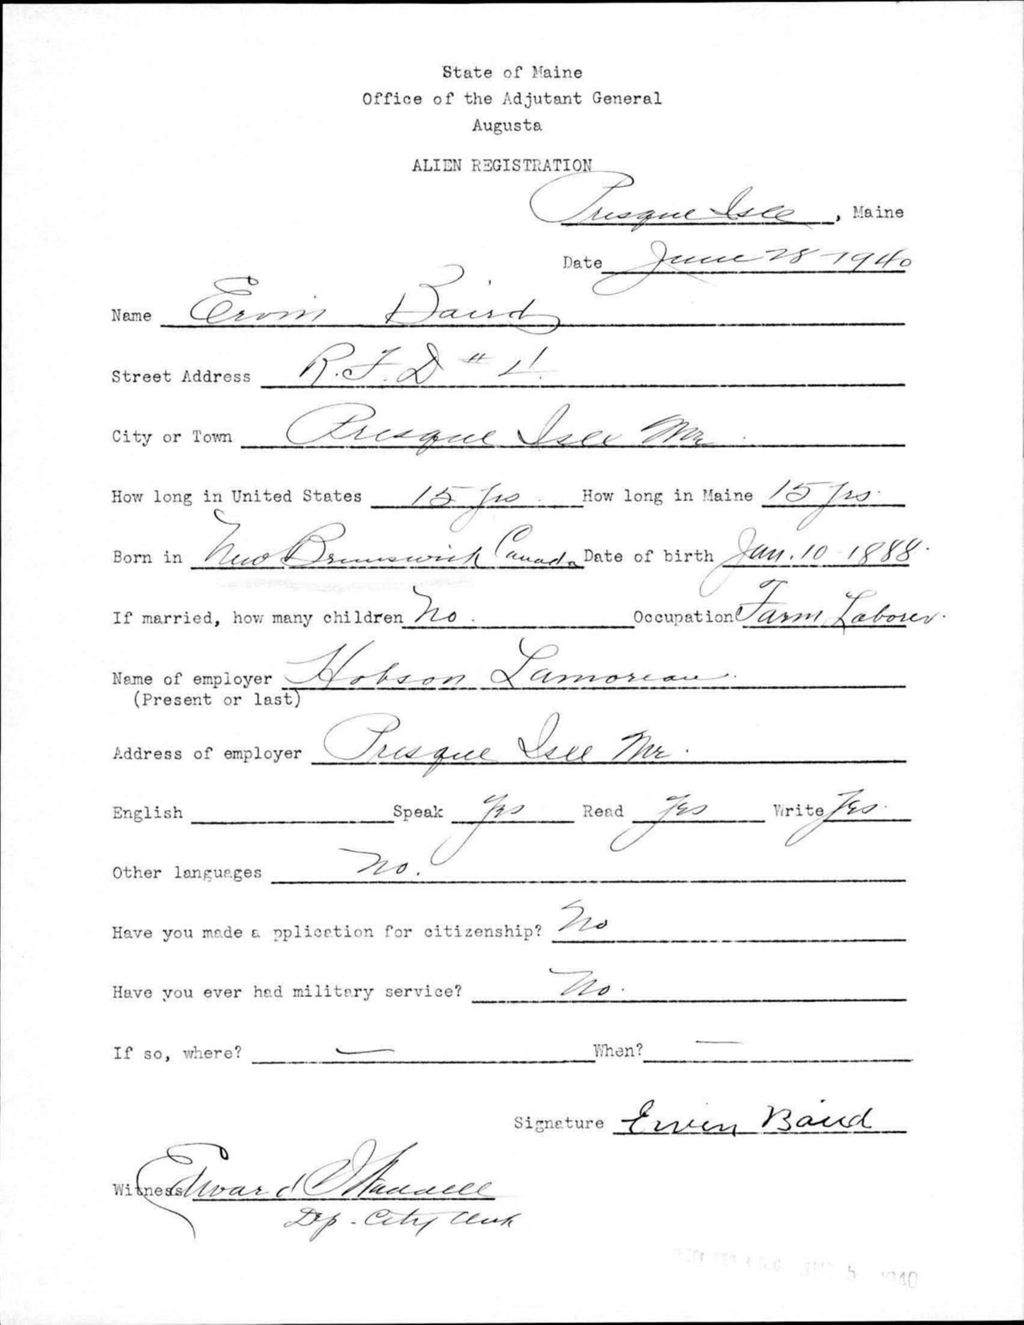 State of Maine
Office of the Adjutant General
Augusta
ALIEN REGISTRATION
Presque Isle, Maine
Date June 28 1940
Name Ervin Baird
Street Address R.F.D # 4.
City or Town Presque Isle Me.
How long in United States 15 yrs. How long in Maine 15 yrs.
Born in New Brunswick Canada Date of birth Jan. 10 1888.
If married, how many children No. Occupation Farm Laborer.
Name of employer Hobson Lamoreau.
(Present or last)
Address of employer Presque Isle Me.
English Speak Yes Read Yes Write Yes.
Other languages No.
Have you made a pplication for citizenship? No
Have you ever had military service? No.
If so, where? — When? —
Signature Ervin Baird
Witness Edward
Dep. City Clerk
1940